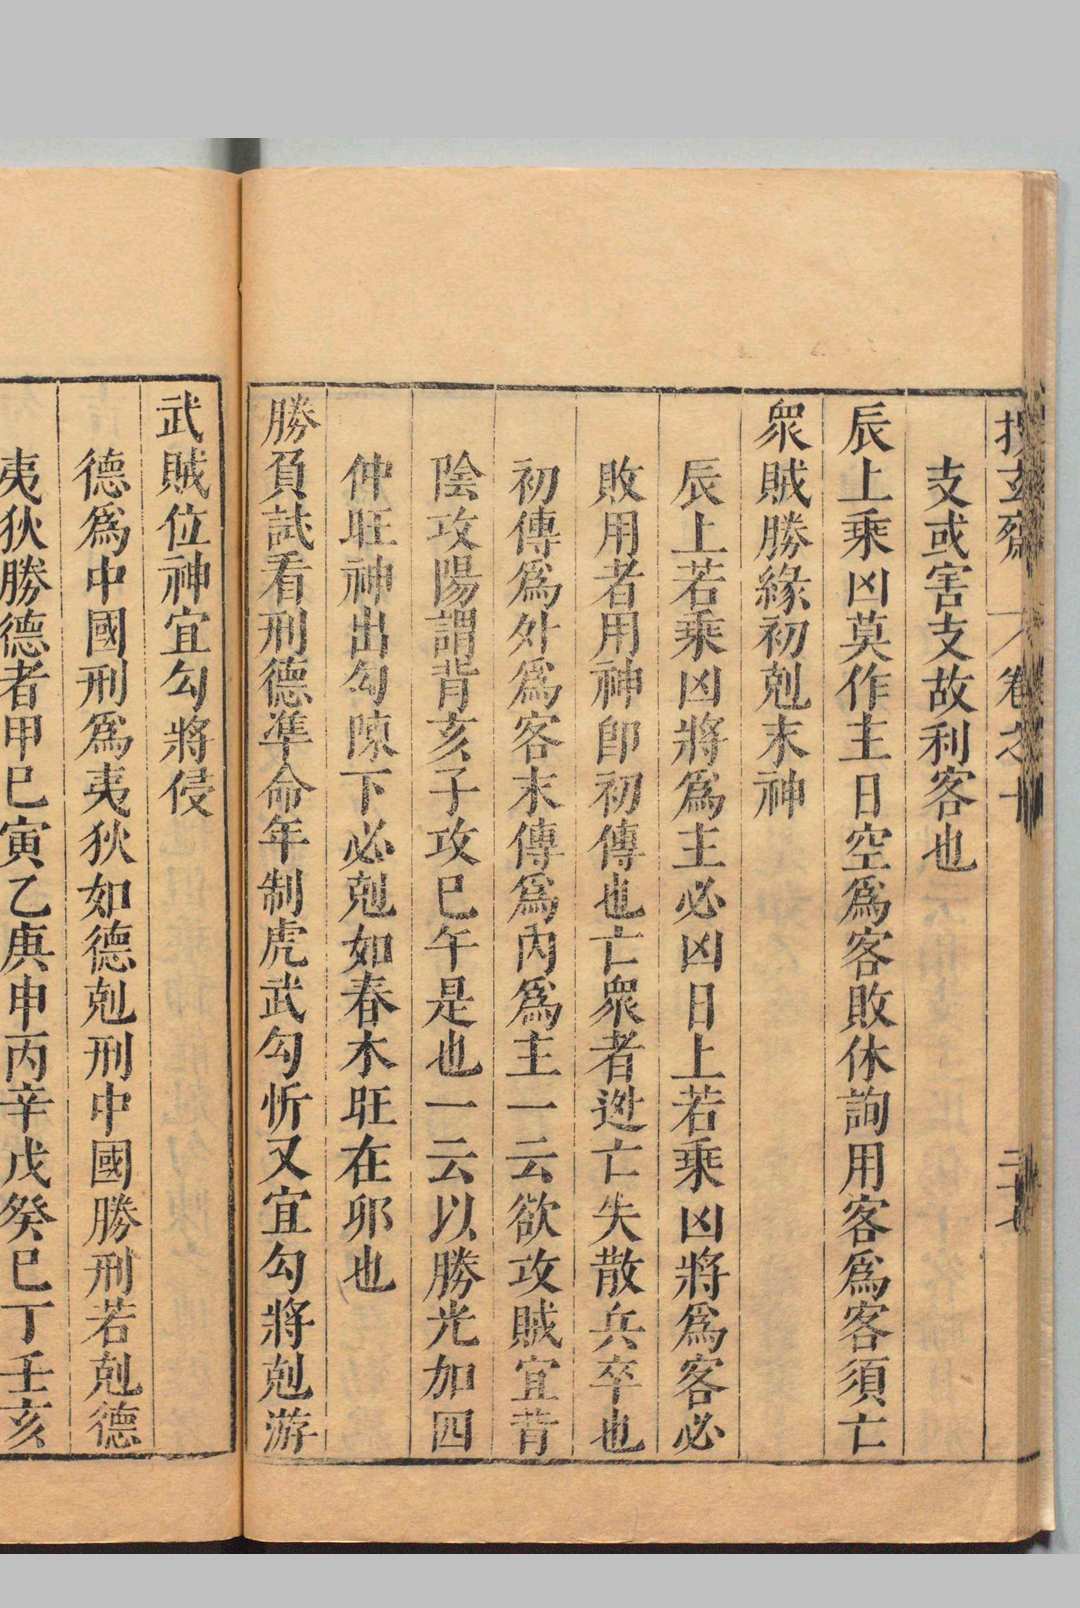 玄齋 卷之十
支或害支故利客也
辰上乘凶莫作主日空為客敗休詢用客為客須亡
衆賊勝緣初剋末神
辰上若乘凶將為主必凶日上若乘凶將為客必
敗用者用神卽初傳也亡衆者迯亡失散兵卒也
初傳為外為客末傳為內為主一云欲攻賊宜背
陰攻陽謂背亥子攻巳午是也一云以勝光加四
仲旺神出勾陳下必剋如春木旺在卯也
勝負試看刑德準命年制虎武勾忻又宜勾將剋游
武賊位神宜勾將侵
德為中國刑為夷狄如德剋刑中國勝刑若剋德
夷狄勝德者甲巳寅乙庚申丙辛戊癸巳丁壬亥